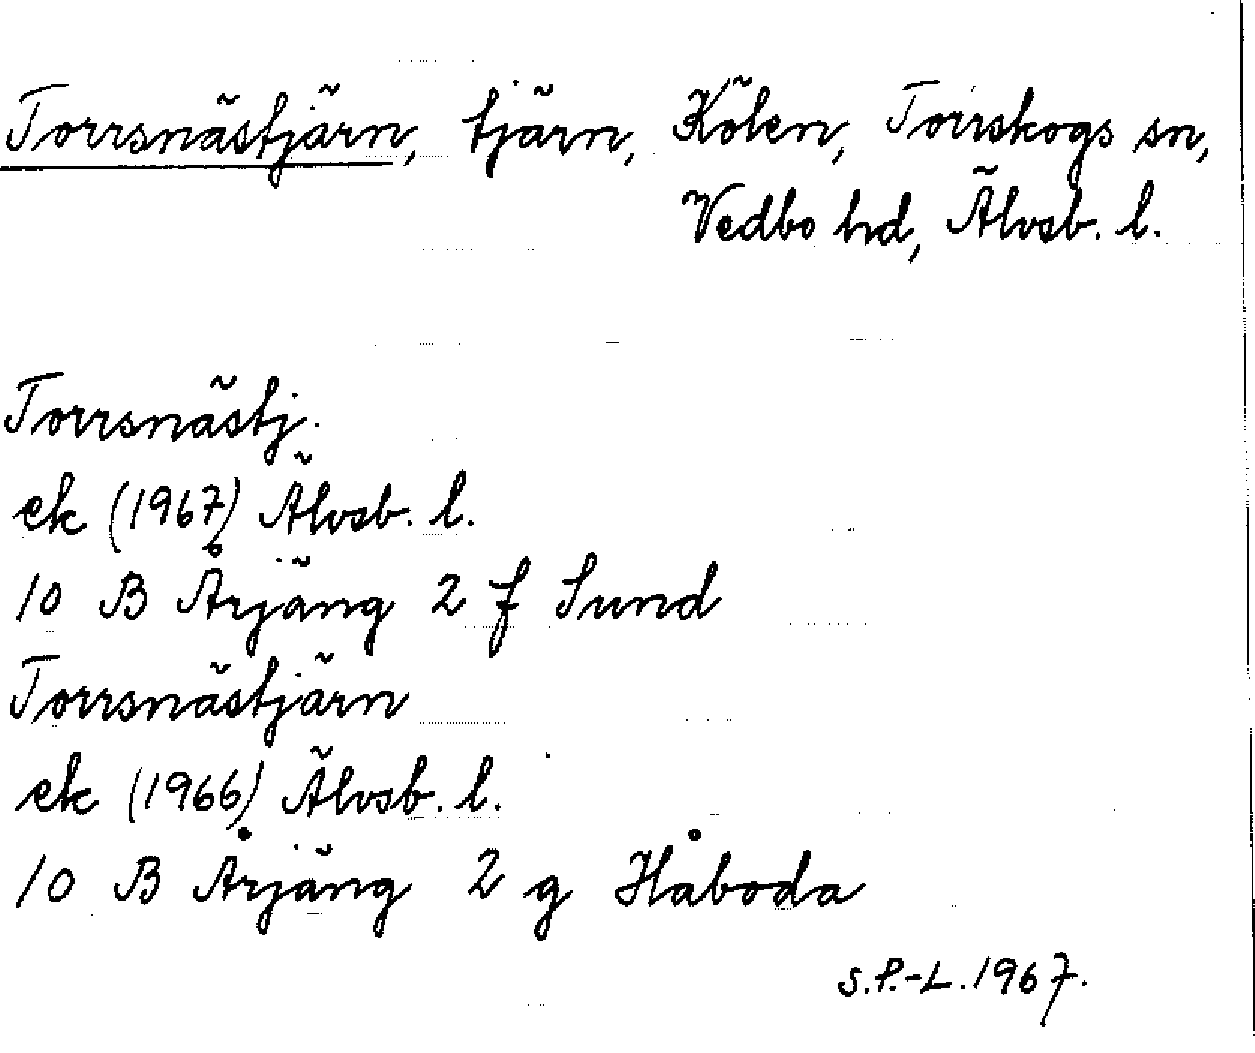 Torrsnästjärn, tjärn, Kölen, Torrskogs sn,
Vedbo hd, Älvsb. l.
Torrsnästj.
ek (1967) Älvsb. l.
10 B Årjäng 2 f Sund
Torrsnästjärn
ek (1966) Älvsb. l.
10 B Årjäng 2 g Håboda
S.P.-L. 1967.